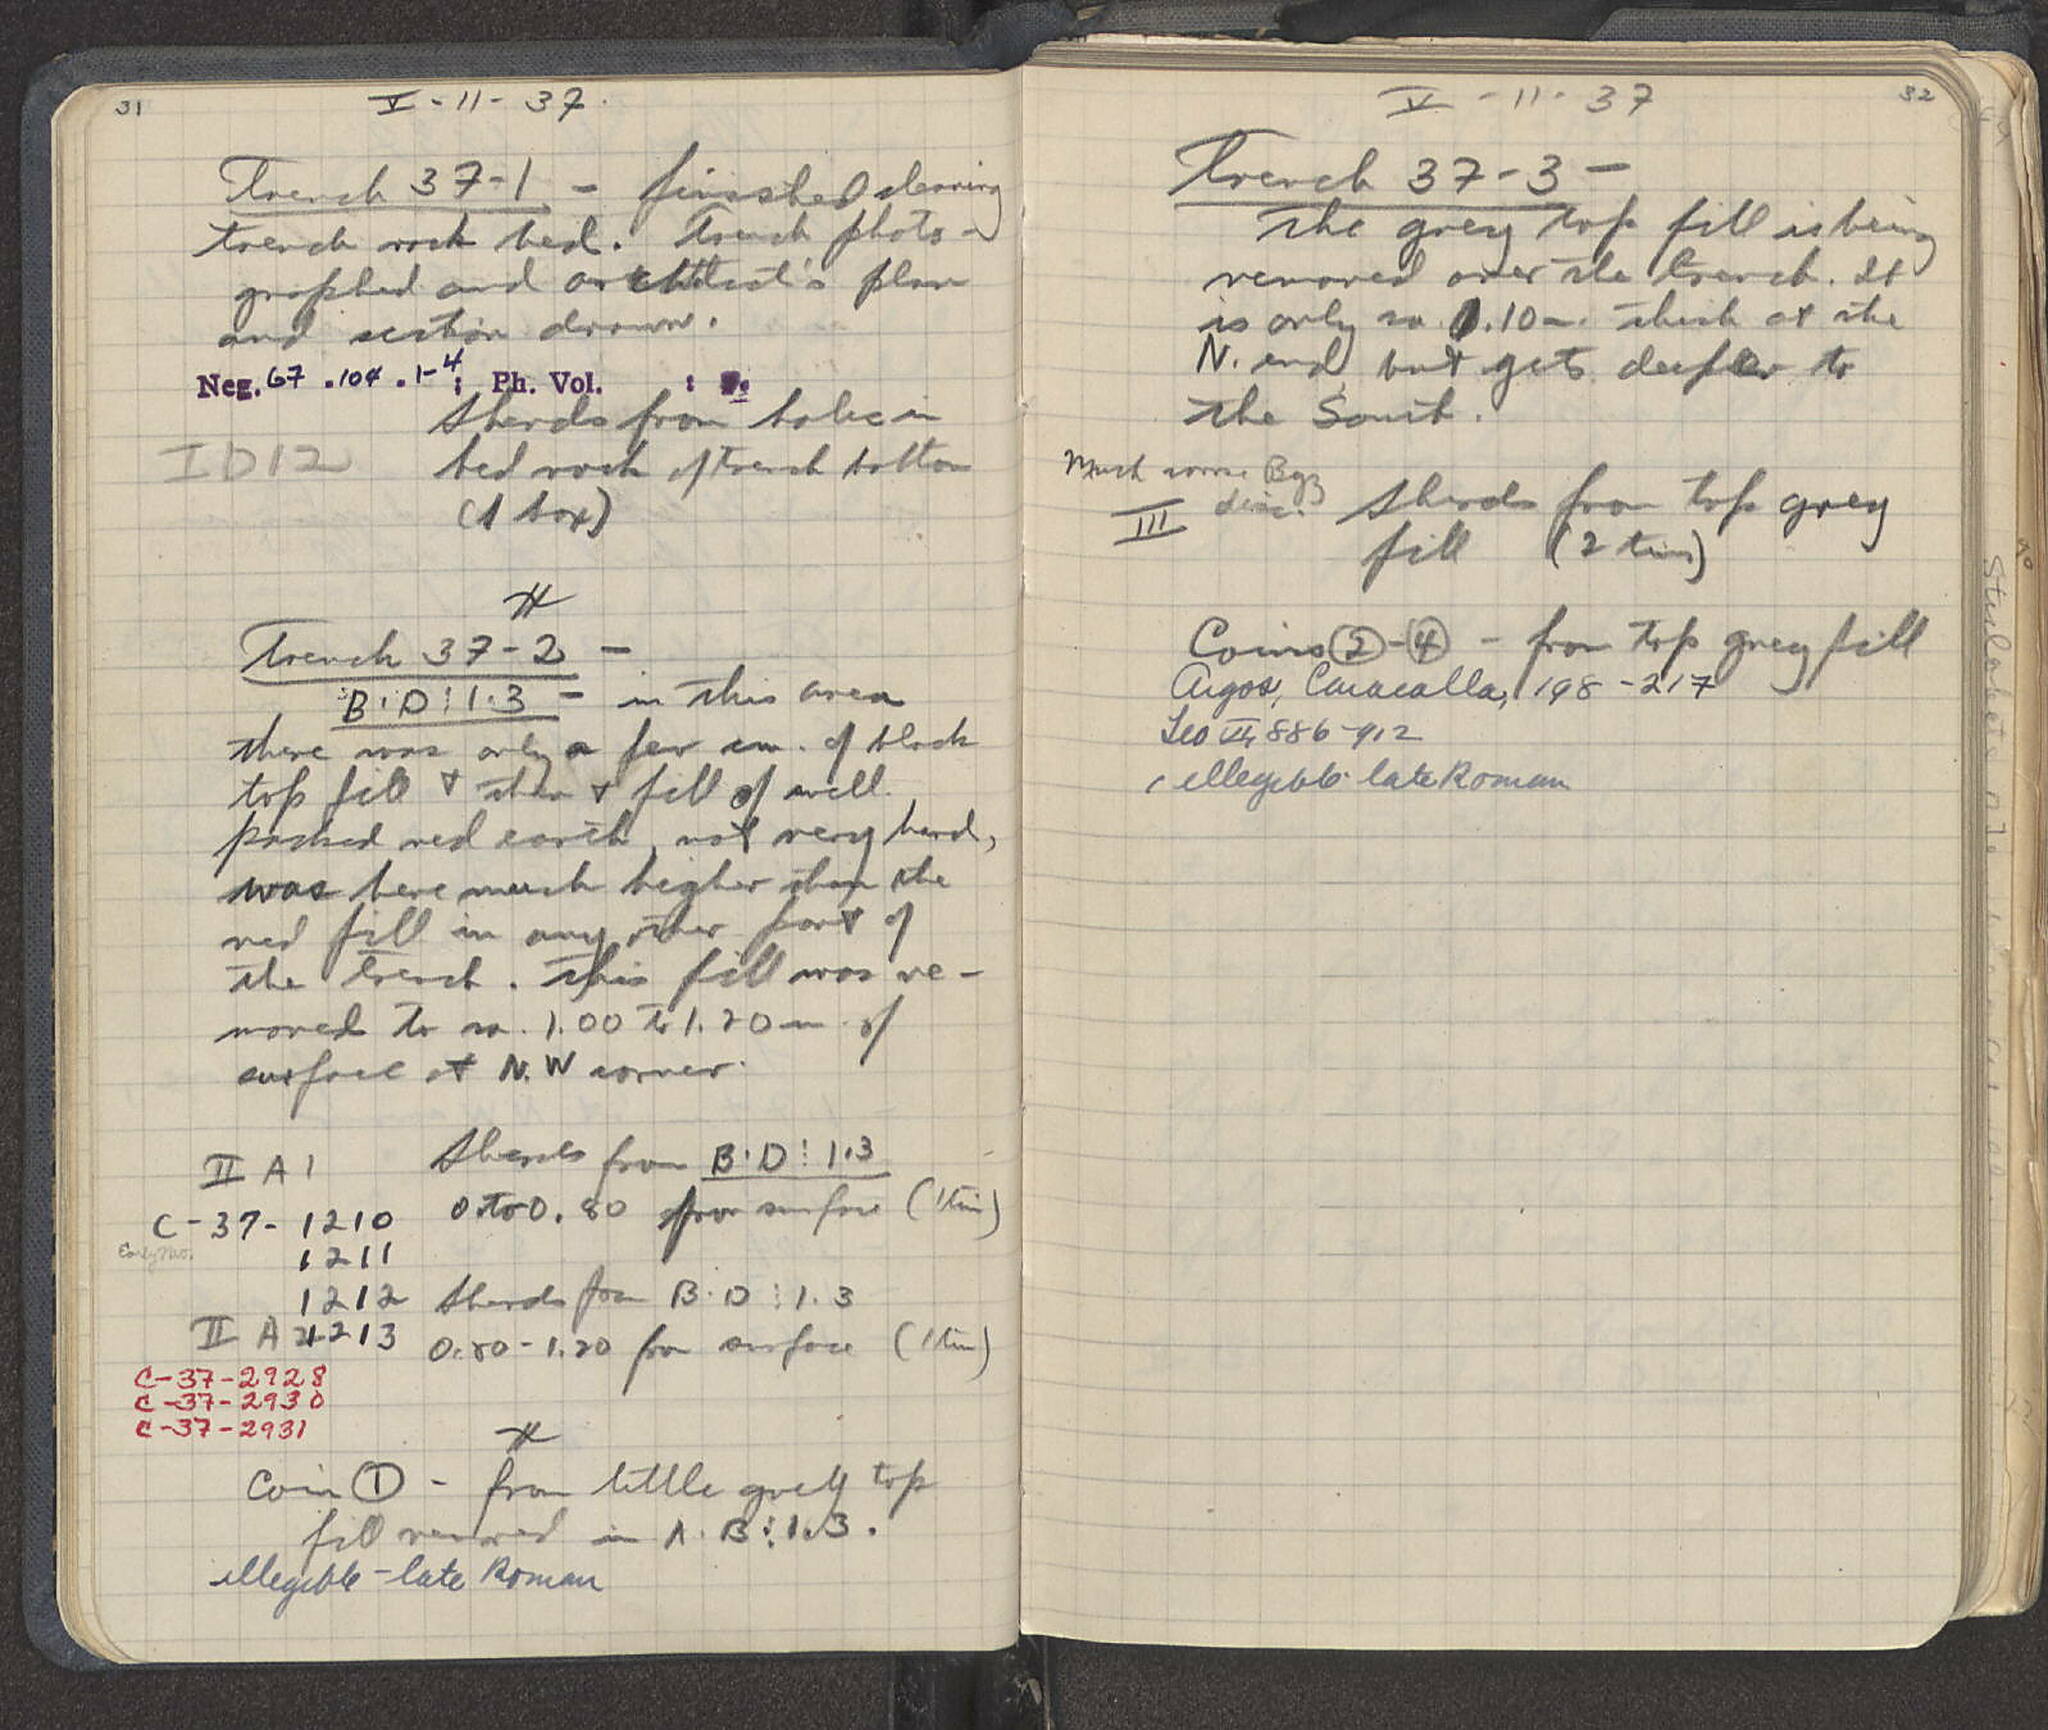 31
V - 11 - 37.
Trench 37-1 - finished cleaning
trench rock bed. Trench photo-
graphed and architect's plan
and section drawn.
Neg. 67 . 104 . 1-4 ; Ph. Vol. :
Sherds from holes in
I D 12 bed rock of trench bottom
(1 box)
Trench 37-2 -
B·D⋮1·3 - in this area
there was only a few cm. of black
top fill & then + fill of well
packed red earth, not very hard,
was here much higher than the
red fill in any other part of
the trench. This fill was re-
moved to ca. 1.00 to 1.20 m of
surface at N.W corner.
II A 1 Sherds from B·D⋮1·3
C-37-1210 0.to 0.80 from surface (1 tin)
1211
1212 Sherds from B·D⋮1.3
II A 2 1213 0.80-1.20 from surface (1 tin)
C-37-2928
C-37-2930
C-37-2931
Coin ① - from little grey top
fill removed in A·B⋮1.3.
illegible - late Roman
32
V - 11 - 37
Trench 37-3 -
The grey top fill is being
removed over the trench. It
is only ca 0.10 m. thick at the
N. end but gets deeper to
the South.
Much coarse Byz
III disc. Sherds from top grey
fill (2 tins)
Coins ②-④ - from top grey fill
Argos, Caracalla, 198-217
Leo VI, 886-912
1 illegible late Roman